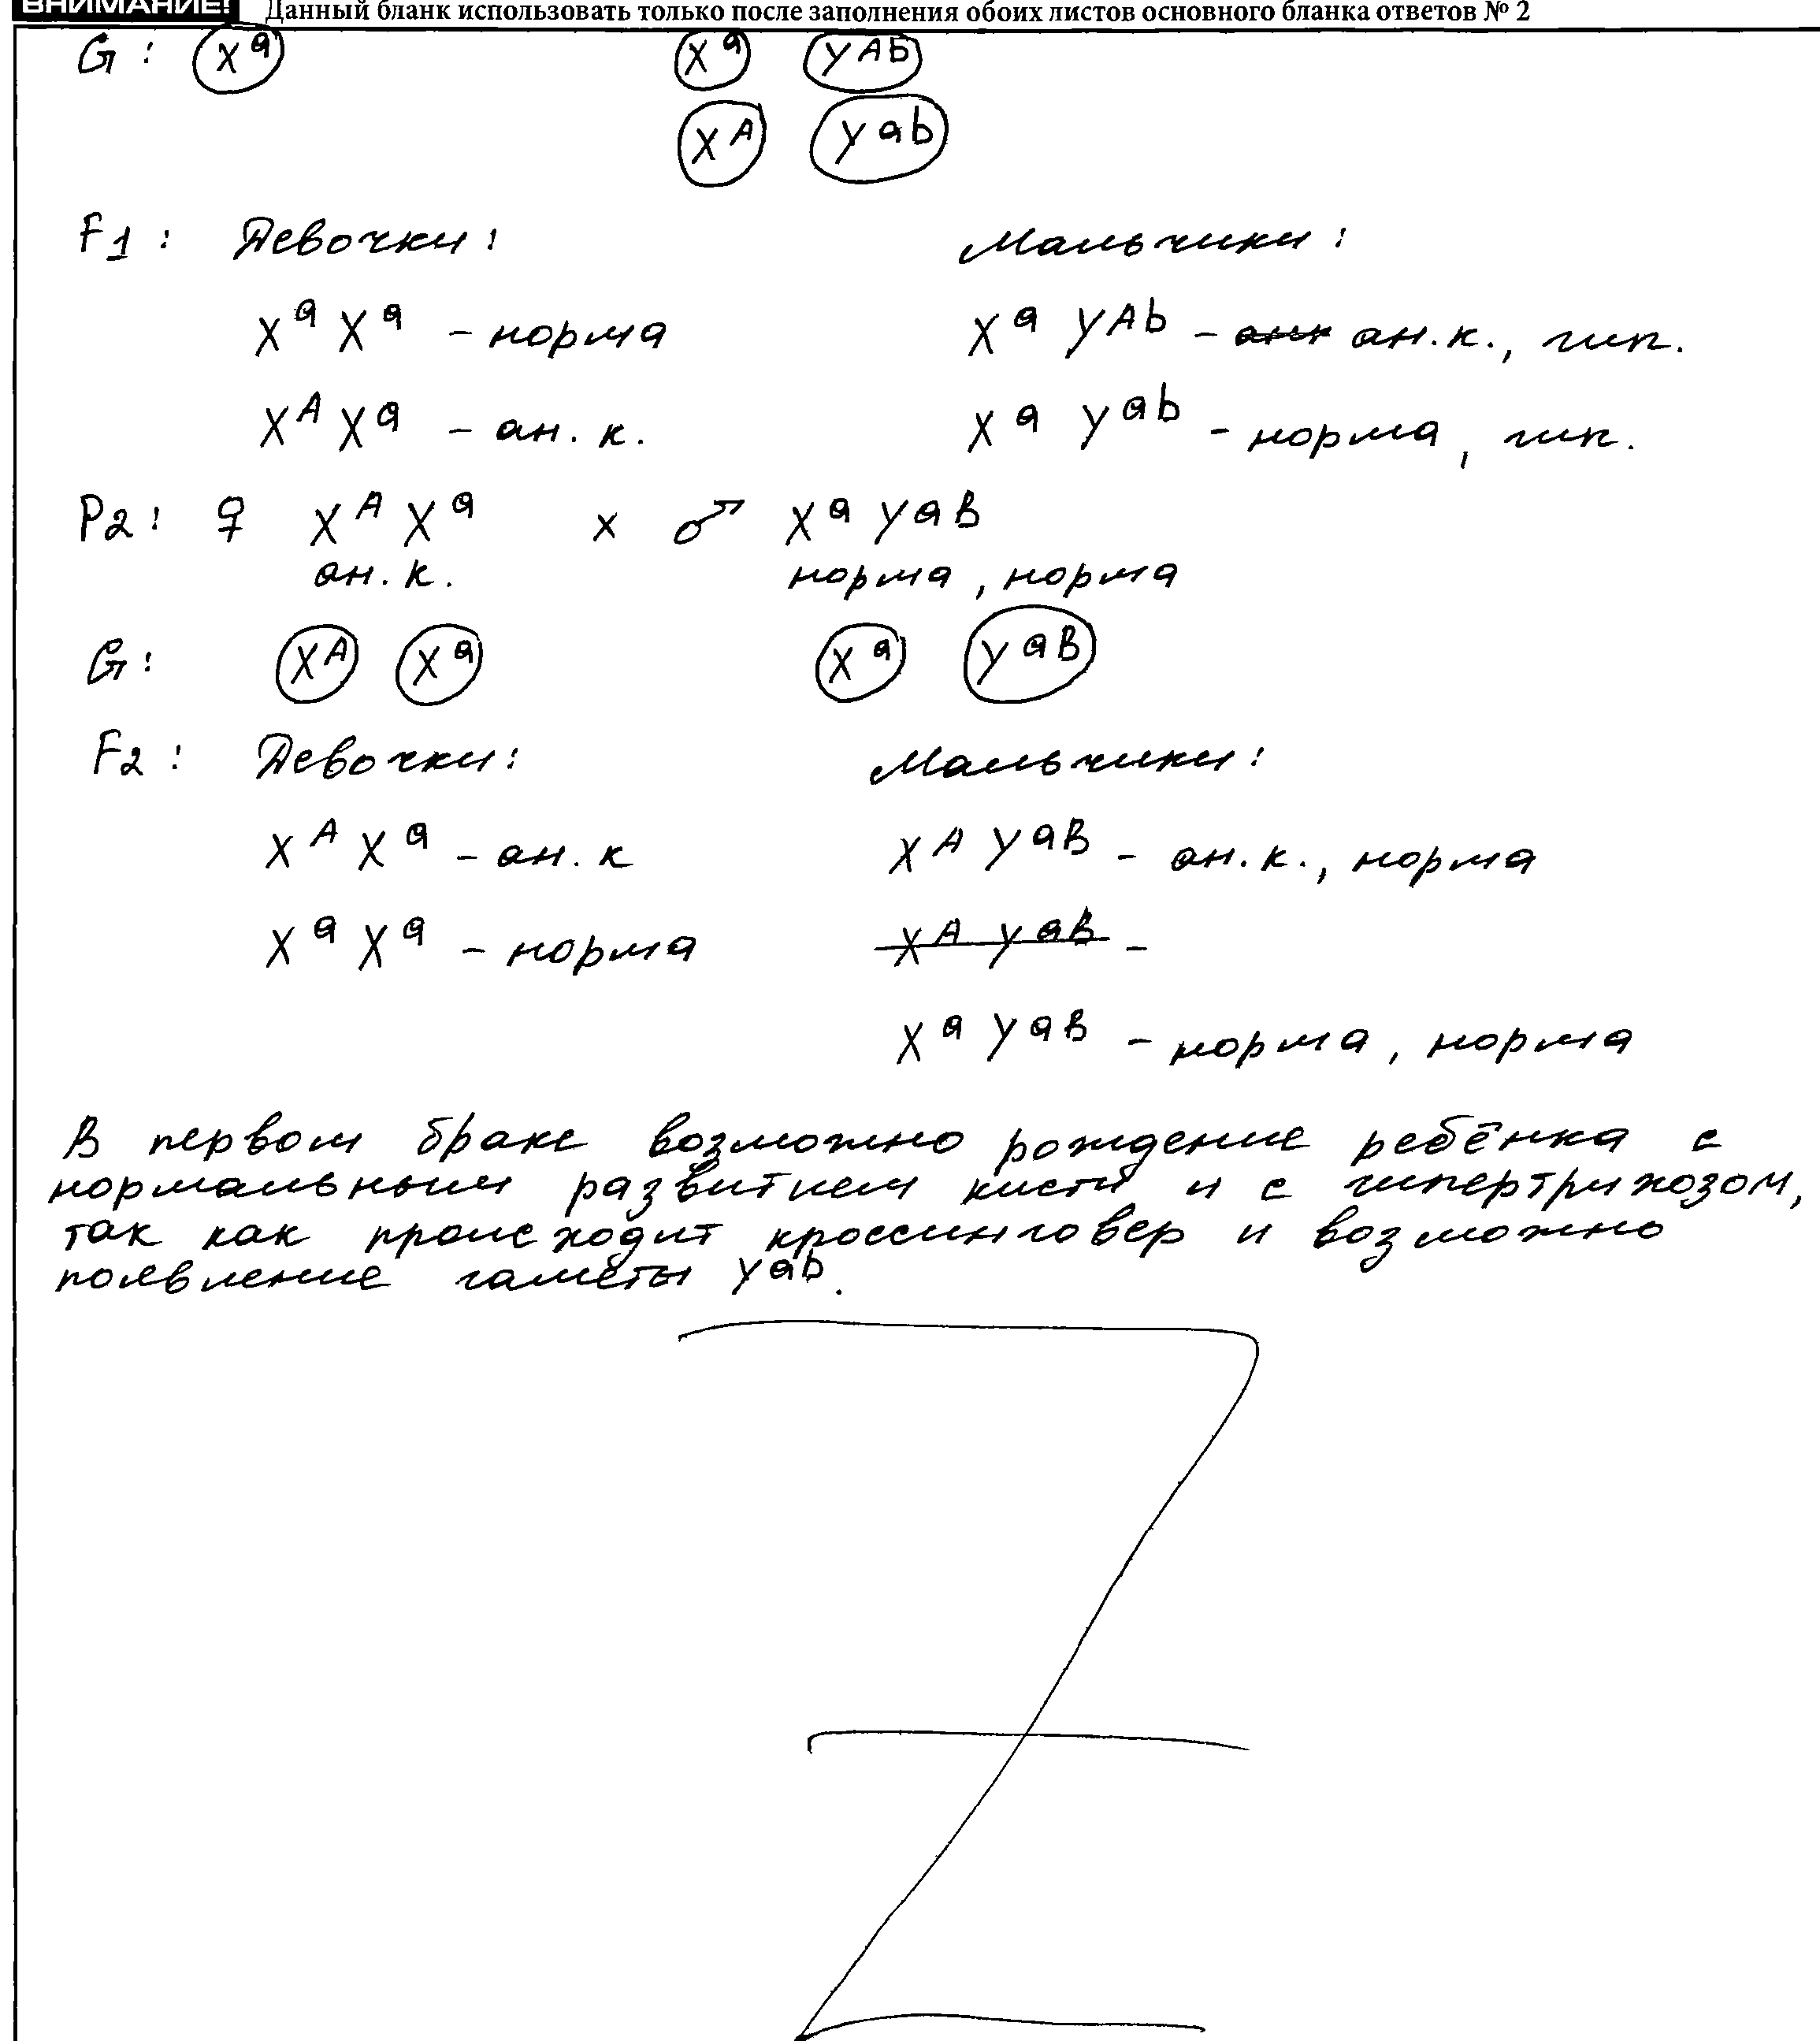 ВНИМАНИЕ! Данный бланк использовать только после заполнения обоих листов основного бланка ответов № 2
G: Xᵃ Xᵃ Yᴬᵇ
Xᴬ Yᵃᵇ
F1: Девочки: Мальчики:
XᵃXᵃ - норма XᵃYᴬᵇ - ~~анк~~ ан.к., гип.
XᴬXᵃ - ан. к. XᵃYᵃᵇ - норма, гип.
P2: ♀ XᴬXᵃ x ♂ XᵃYᵃᴮ
ан. к. норма, норма
G: Xᴬ Xᵃ Xᵃ Yᵃᴮ
F2: Девочки: Мальчики:
XᴬXᵃ - ан. к XᴬYᵃᴮ - ан. к., норма
XᵃXᵃ - норма ~~XᴬYᵃᴮ~~ -
XᵃYᵃᴮ - норма, норма
В первом браке возможно рождение ребёнка с
нормальным развитием кисти и с гипертрихозом,
так как происходит кроссинговер и возможно
появление гаметы Yᵃᵇ.